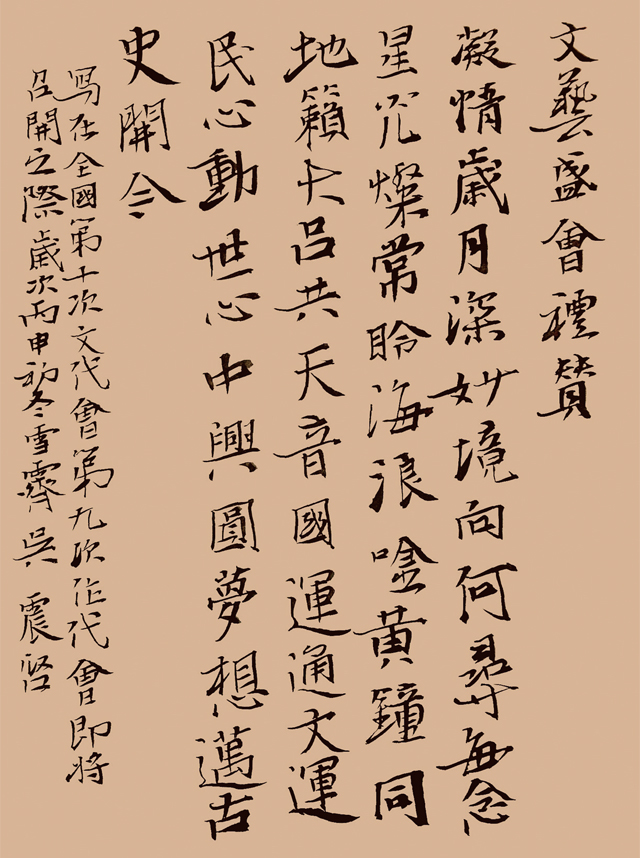 文藝盛會禮贊
凝情歲月深妙境向何尋每念
星光燦常聆海浪唫黄鐘同
地籟大吕共天音國運通文運
民心動世心中興圓夢想邁古
史開今
寫在全國第十次文代會第九次作代會即將
召開之際歲次丙申初冬雪霽吴震啓